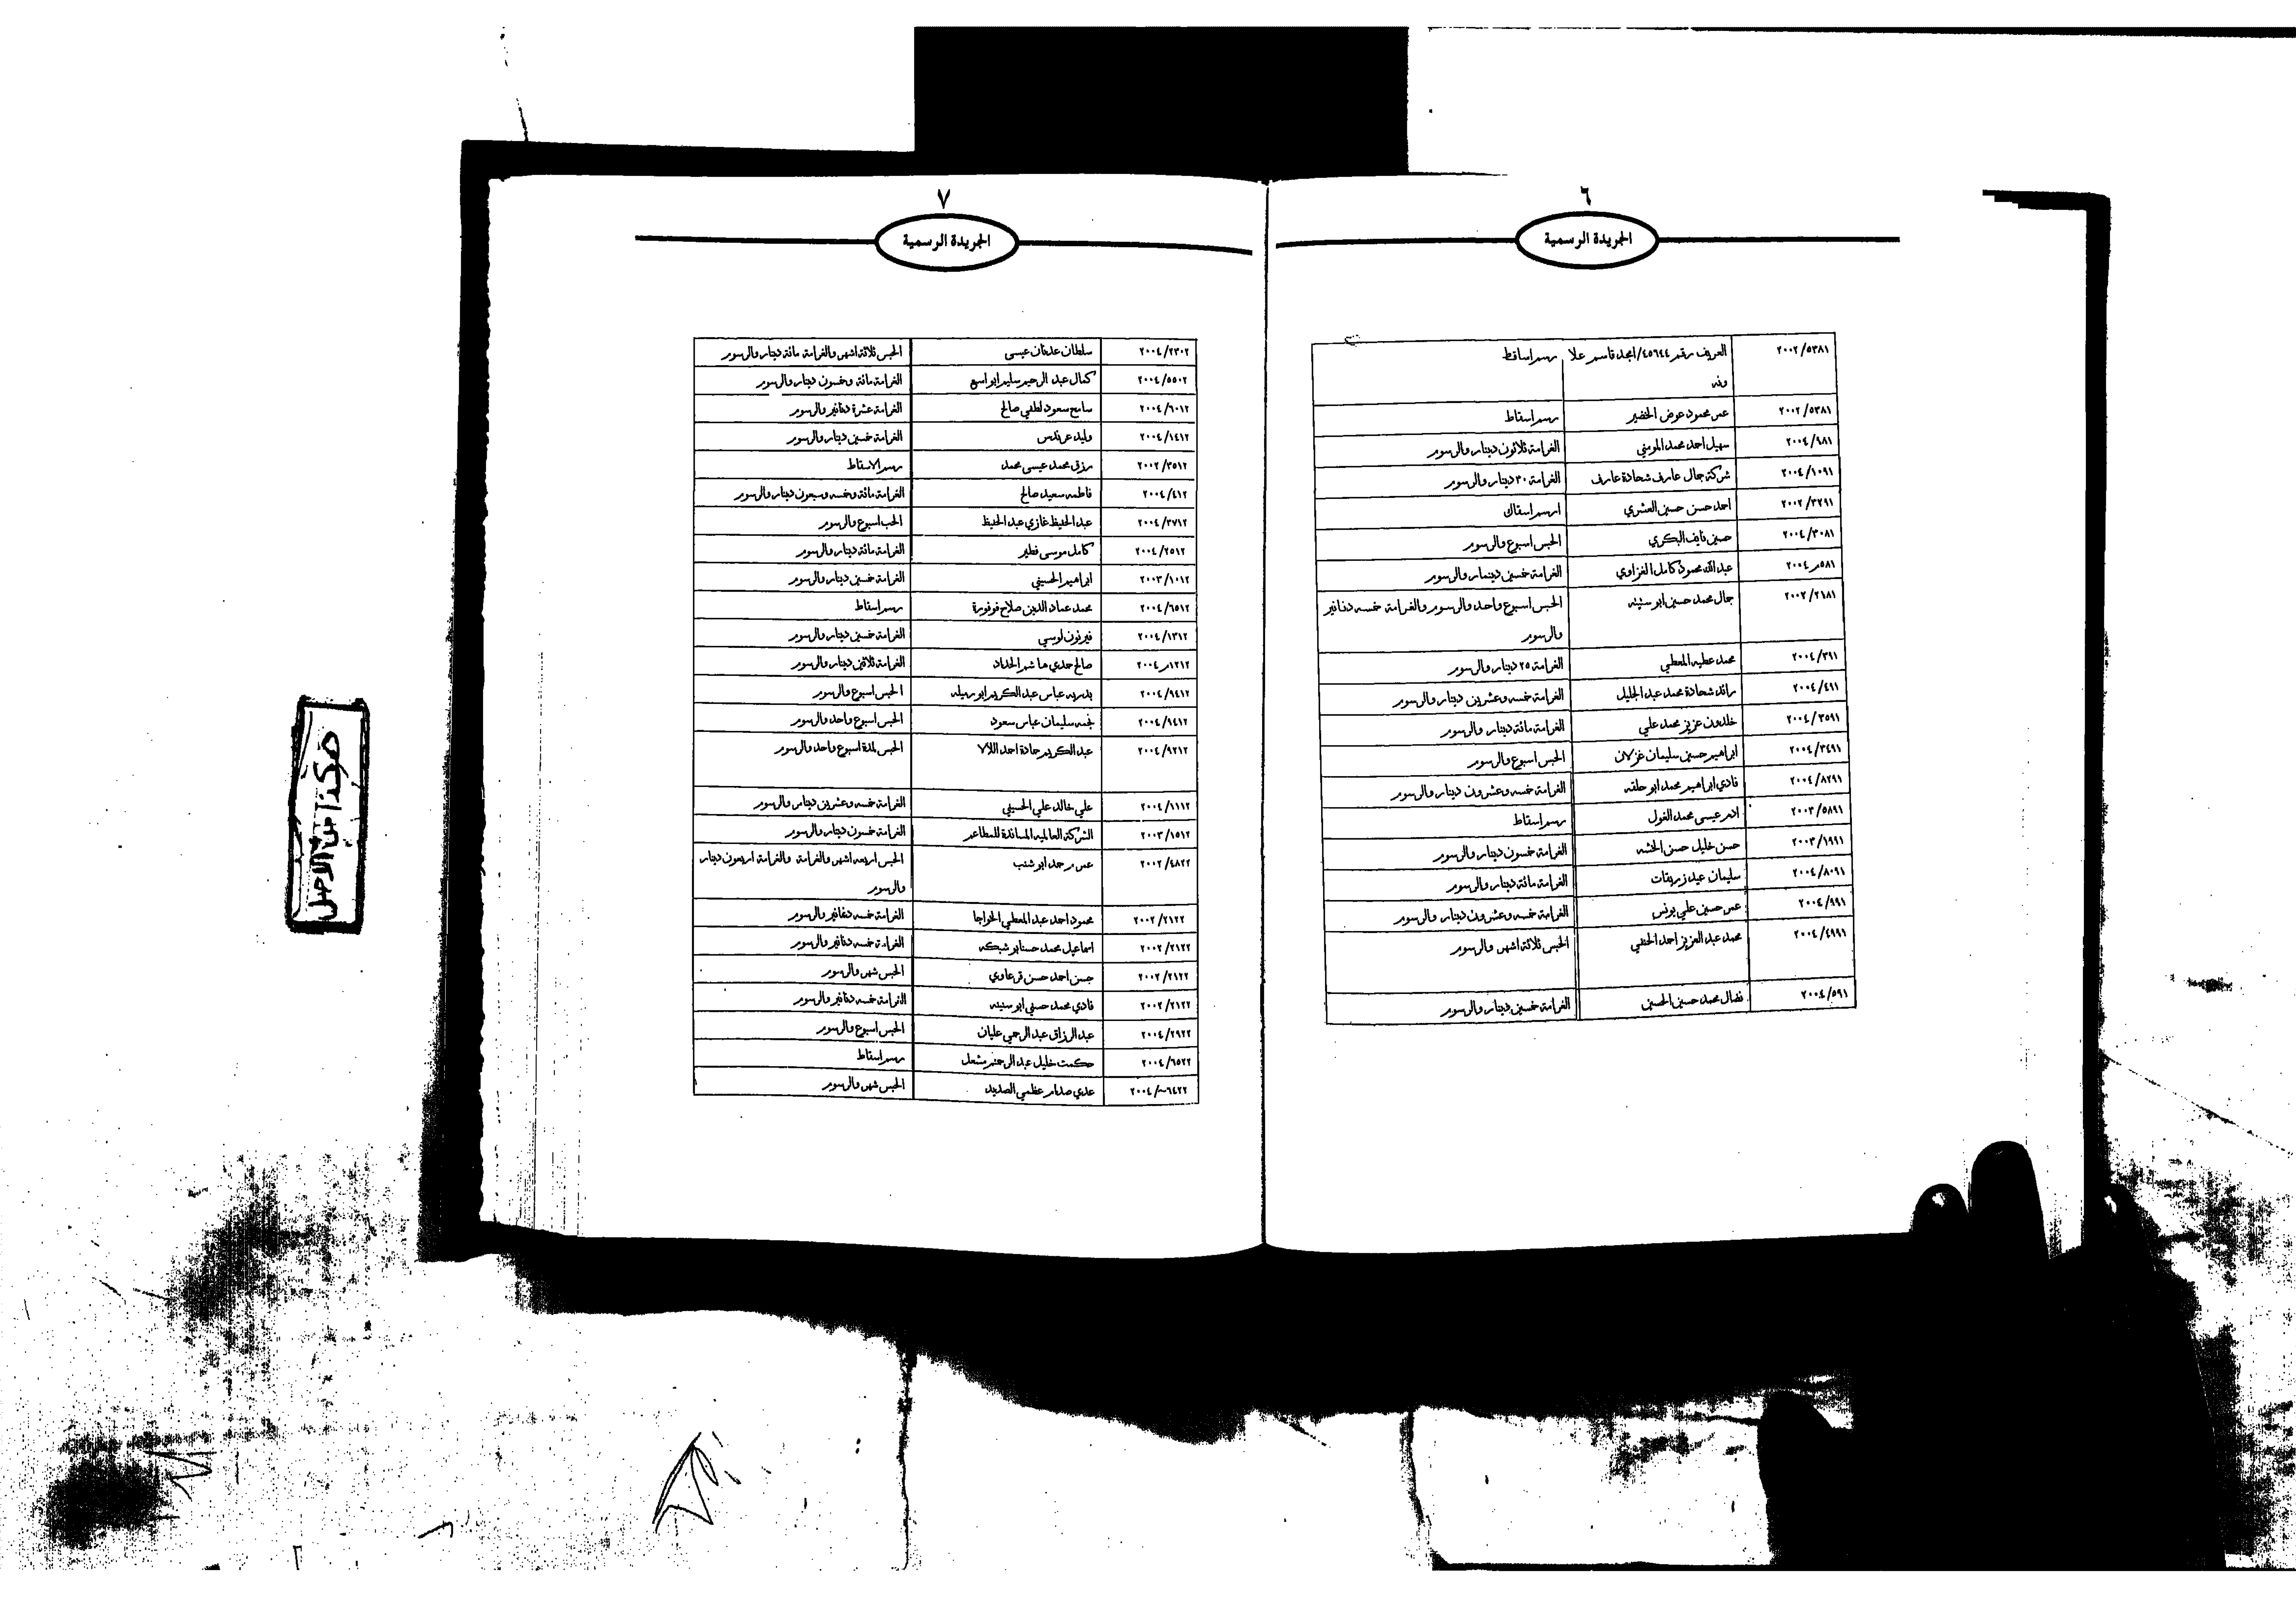 ٦
الجريدة الرسمية
٢٠٠٢/٥٣٨١ العريف رقم ٤٥٦٤٤/امجد قاسم علا رسم اساقط
ونه
٢٠٠٢/٥٣٨١ عمر محمود عوض الخضير رسم اسقاط
٢٠٠٤/٩٨١ سهيل احمد محمد المومني الغرامة ثلاثون دينار والرسوم
٢٠٠٤/١٠٩١ شركة جمال عارف شحادة عارف الغرامة ٣٠ دينار والرسوم
٢٠٠٢/٣٢٩١ احمد حسن حسين العشري ارسم اسقاك
٢٠٠٤/٣٠٨١ حسين نايف البكري الحبس اسبوع والرسوم
٥٨١ر٢٠٠٤ عبدالله محمود كامل الغزاوي الغرامة خمسين دينمار والرسوم
٢٠٠٢/٢١٨١ جمال محمد حسين ابو سنينه الحبس اسبوع واحد والرسوم والغرامة خمسه دنانير
والرسوم
٢٠٠٤/٣٩١ محمد عطيه المعطي الغرامة ٢٥ دينار والرسوم
٢٠٠٤/٤٩١ رائد شحادة محمد عبد الجليل الغرامة خمسه وعشرين دينار والرسوم
٢٠٠٤/٣٥٩١ خلدون عزيز محمد علي الغرامة مائة دينار والرسوم
٢٠٠٤/٣٤٩١ ابراهيم حسين سليمان غزلان الحبس اسبوع والرسوم
٢٠٠٤/٨٢٩١ فادي ابراهيم محمد ابو حلقه الغرامة خمسه وعشرون دينار والرسوم
٢٠٠٣/٥٨٩١ ادم عيسى محمد الغول رسم اسقاط
٢٠٠٣/١٩٩١ حسن خليل حسن الخشه الغرامة خمسون دينار والرسوم
٢٠٠٤/٨٠٩١ سليمان عيد زريقات الغرامة مائة دينار والرسوم
٢٠٠٤/٩٩١ عمر حسين علي يونس الغرامة خمسه وعشرون دينار والرسوم
٢٠٠٤/٤٩٩١ محمد عبد العزيز احمد الحنفي الحبس ثلاثة اشهر والرسوم
٢٠٠٤/٥٩١ نضال محمد حسين الحسين الغرامة خمسين دينار والرسوم
٧
الجريدة الرسمية
٢٠٠٤/٢٣٠٢ سلطان عدنان عيسى الحبس ثلاثة اشهر والغرامة مائة دينار والرسوم
٢٠٠٤/٥٥٠٢ كمال عبد الرحيم سليم ابو اسبع الغرامة مائة وخمسون دينار والرسوم
٢٠٠٤/٦٠١٢ سامح سعود لطفي صالح الغرامة عشرة دنانير والرسوم
٢٠٠٤/١٤١٢ وليد عرندس الغرامة خمسين دينار والرسوم
٢٠٠٢/٣٥١٢ رزق محمد عيسى محمد رسم الاسقاط
٢٠٠٤/٤١٢ فاطمه سعيد صالح الغرامة مائة وخمسه وسبعون دينار والرسوم
٢٠٠٤/٣٧١٢ عبد الحفيظ غازي عبد الحفيظ الحب اسبوع والرسوم
٢٠٠٤/٢٥١٢ كامل موسى فطير الغرامة مائة دينار والرسوم
٢٠٠٣/١٠١٢ ابراهيم الحسيني الغرامة خمسين دينار والرسوم
٢٠٠٤/٦٥١٢ محمد عماد الدين صلاح فوفورة رسم اسقاط
٢٠٠٤/١٣١٢ فيرنون لوسي الغرامة خمسين دينار والرسوم
١٢١٢ر٢٠٠٤ صالح حمدي هاشم الحداد الغرامة ثلاثين دينار والرسوم
٢٠٠٤/٩٤١٢ بدريه عباس عبد الكريم ابو رميله الحبس اسبوع والرسوم
٢٠٠٤/٩٤١٢ نجمه سليمان عباس سعود الحبس اسبوع واحد والرسوم
٢٠٠٤/٩٢١٢ عبد الكريم حمادة احمد اللالا الحبس لمدة اسبوع واحد والرسوم
٢٠٠٤/١١١٢ علي خالد علي الحسيني الغرامة خمسه وعشرين دينار والرسوم
٢٠٠٣/١٥١٢ الشركة العالميه المساندة للمطاعم الغرامة خمسون دينار والرسوم
٢٠٠٢/٤٨٢٢ عمر رحمد ابو شنب الحبس اربعه اشهر والغرامة والغرامة اربعون دينار
والرسوم
٢٠٠٢/٢١٢٢ محمود احمد عبد المعطي الخواجا الغرامة خمسه دنانير والرسوم
٢٠٠٢/٢١٢٢ اسماعيل محمد حسنابو شبكه الغرامة خمسه دنانير والرسوم
٢٠٠٢/٢١٢٢ حسن احمد حسن قرعاوي الحبس شهر والرسوم
٢٠٠٢/٢١٢٢ فادي محمد حسني ابو سنينه الغرامة خمسه دنانير والرسوم
٢٠٠٤/٢٩٢٢ عبد الرزاق عبد الرحمي عليان الحبس اسبوع والرسوم
٢٠٠٤/٦٥٢٢ حكمت خليل عبد الرحمنم مشعل رسم اسقاط
٢٠٠٤/~٦٤٢٢ عدي صدام عظمي الصديد الحبس شهر والرسوم
هكذا من الاصل